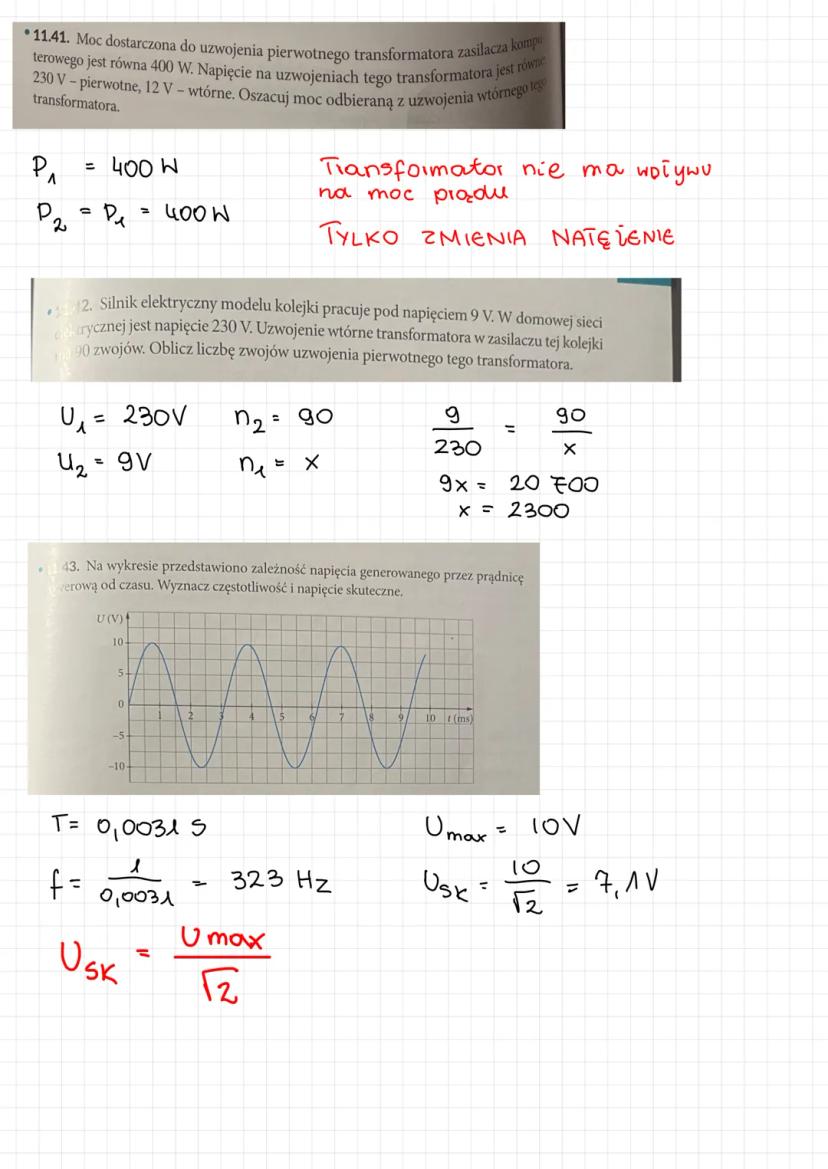 •11.41. Moc dostarczona do uzwojenia pierwotnego transformatora zasilacza kompu
terowego jest równa 400 W. Napięcie na uzwojeniach tego transformatora jest równe
230 V – pierwotne, 12 V – wtórne. Oszacuj moc odbieraną z uzwojenia wtórnego tego
transformatora.
P₁ = 400 W
P₂ = P₁ = 400 W
Transformator nie ma wpływu
na moc prądu
TYLKO ZMIENIA NATĘŻENIE
2. Silnik elektryczny modelu kolejki pracuje pod napięciem 9 V. W domowej sieci
rycznej jest napięcie 230 V. Uzwojenie wtórne transformatora w zasilaczu tej kolejki
90 zwojów. Oblicz liczbę zwojów uzwojenia pierwotnego tego transformatora.
U₁ = 230V n₂ = 90
U₂ = 9V n₁ = x
9/230 = 90/x
9x = 20 700
x = 2300
43. Na wykresie przedstawiono zależność napięcia generowanego przez prądnicę
erową od czasu. Wyznacz częstotliwość i napięcie skuteczne.
U (V)
10
5
0
-5
-10
1 2 3 4 5 6 7 8 9 10 t (ms)
T= 0,0031 s
f= 1/0,0031 = 323 Hz
Umax = 10V
Usk = 10/√2 = 7,1V
Usk = Umax/√2